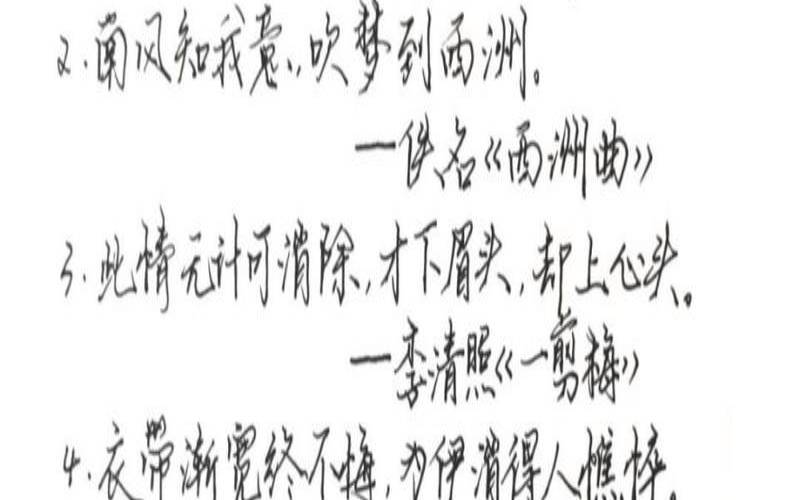 2.南风知我意,吹梦到西洲。
—佚名《西洲曲》
3.此情无计可消除,才下眉头,却上心头。
—李清照《一剪梅》
4.衣带渐宽终不悔,为伊消得人憔悴。